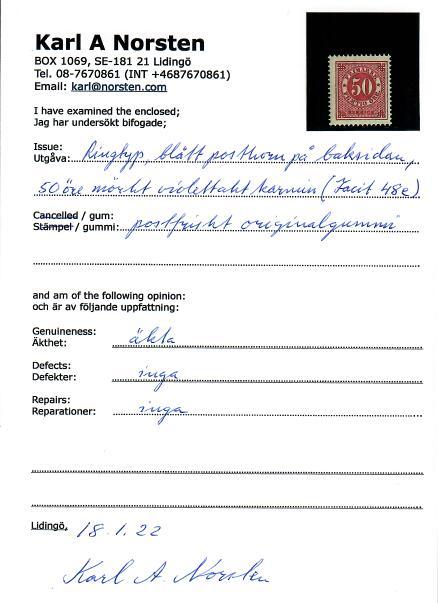 Karl A Norsten
BOX 1069, SE-181 21 Lidingö
Tel. 08-7670861 (INT +4687670861)
Email: karl@norsten.com
50
I have examined the enclosed;
Jag har undersökt bifogade;
Issue:
Utgåva: Ringtyp, blått posthorn på baksidan,
50 öre mörkt violettaht karmin (Facit 48e)
Cancelled / gum:
Stämpel / gummi: postfriskt originalgummi
and am of the following opinion:
och är av följande uppfattning:
Genuineness:
Äkthet: äkta
Defects:
Defekter: inga
Repairs:
Reparationer: inga
Lidingö, 18.1.22
Karl A. Norsten